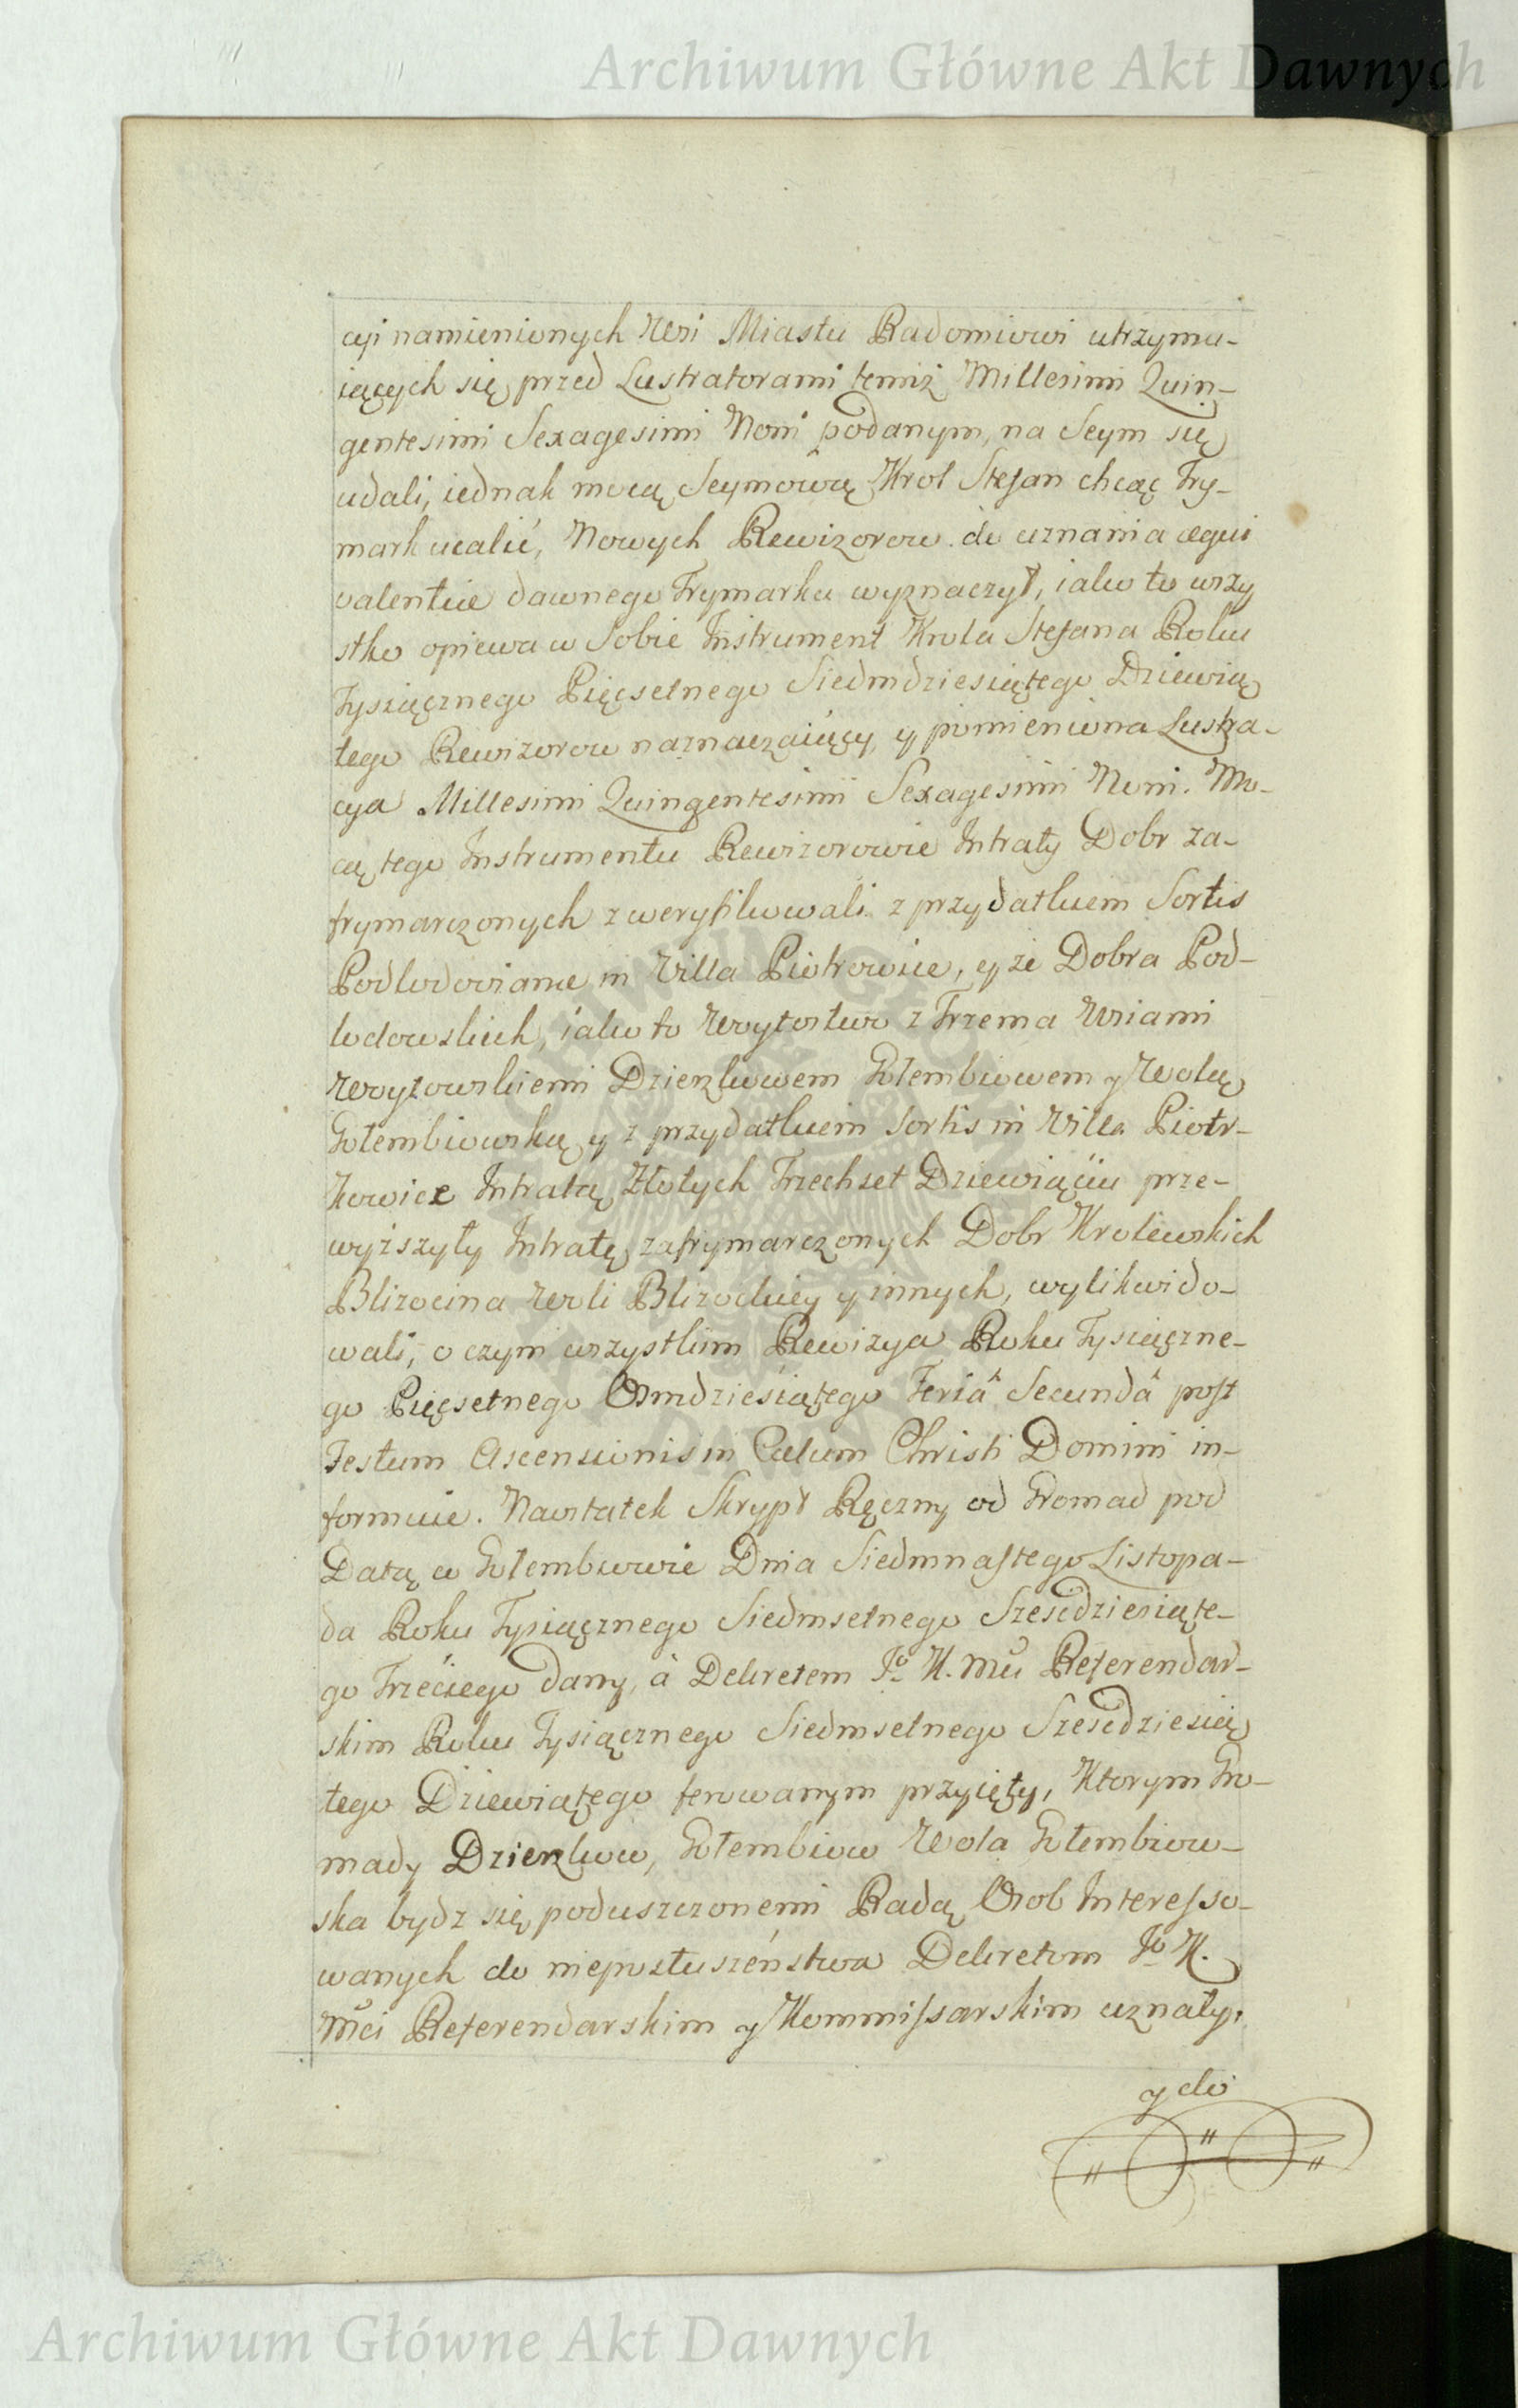 Archiwum Główne Akt Dawnych
cyi namienionych Wsi Miastu Radomiowi utrzymu-
iących się przed Lustratorami temiż Millesimi Quin-
gentesimi Sexagesimi Noni podanym, na Seym się
udali, iednak mocą Seymową Krol Stefan chcąc Fry-
mark ucalić, Nowych Rewizorow do uznania æqui
valentiæ dawnego Frymarku wyznaczył, iako to wszy
stko opiewa w Sobie Instrument Krola Stefana Roku
Tysiącznego Pięcsetnego Siedmdziesiątego Dziewią
tego Rewizorow naznaczaiący, y pomieniona Lustra-
cya Millesimi Quingentesimi Sexagesimi Noni. Mo-
cą tego Instrumentu Rewizorowie Intraty Dobr za-
frymarczonych zweryfikowali z przydatkiem Sortis
Podlodovianæ in Villa Piotrowice, y że Dobra Pod-
lodowskich, iako to Woytostwo z Trzema Wsiami
Woytowskiemi Dzierzkowem Gołembiowem y Wolą
Gołembiowską y z przydatkiem Sortis in Villa Piotr-
kowice Intratą Złotych Trzechset Dziewiąciu prze-
wyższyły Intratę zafrymarczonych Dobr Krolewskich
Blizocina Woli Blizockiey y innych, wylikwido-
wali, o czym wszystkim Rewizya Roku Tysiączne-
go Pięcsetnego Osmdziesiątego Feriâ Secundâ post
Festum Ascensionis in Cælum Christi Domini in-
formuie. Naostatek Skrypt Ręczny od Gromad pod
Datą w Gołembiowie Dnia Siedmnastego Listopa-
da Roku Tysiącznego Siedmsetnego Szescdziesiąte-
go Trzeciego dany, à Dekretem Jo K. Mci Referendar-
skim Roku Tysiącznego Siedmsetnego Szescdziesią
tego Dziewiątego ferowanym przyięty, Ktorym Gro-
mady Dzierzkow, Gołembiow Wola Gołembiow-
ska bydz się poduszczonemi Radą Osob Interesso-
wanych do nieposłuszeństwa Dekretom Jo K.
Mci Referendarskim y Kommissarskim uznały,
y do
Archiwum Główne Akt Dawnych